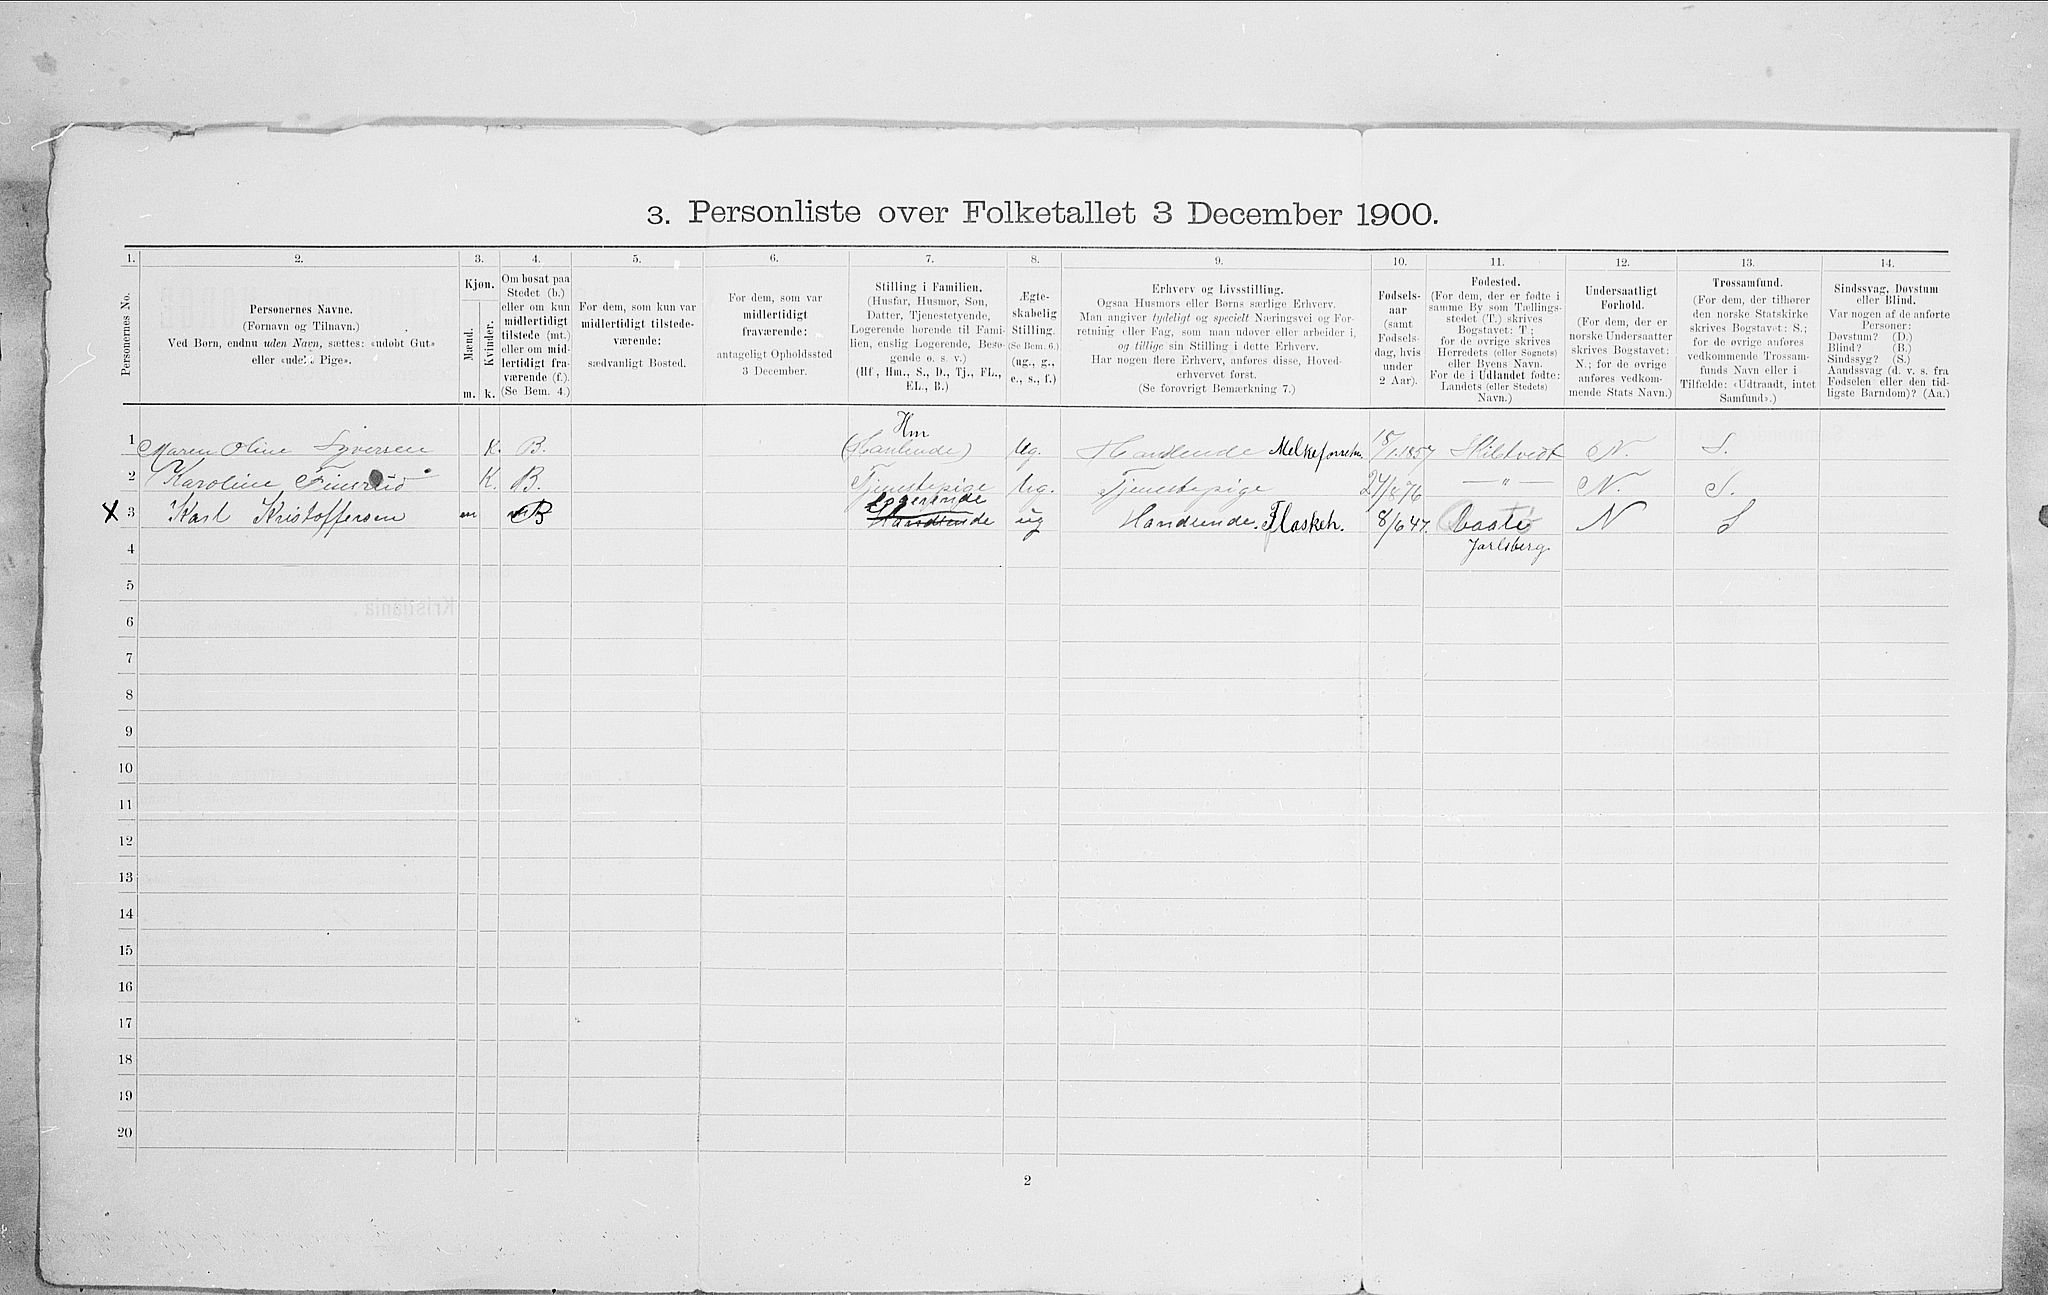 3. Personliste over Folketallet 3 December 1900.
1. 2. 3. 4. 5. 6. 7. 8. 9. 10. 11. 12. 13. 14.
Personernes No.
Personernes Navne.
(Fornavn og Tilnavn.)
Ved Børn, endnu uden Navn, sættes: «udøbt Gut»
eller «udøbt Pige».
Kjøn.
Mænd.
Kvinder.
m. k.
Om bosat paa
Stedet (b.)
eller om kun
midlertidigt
tilstede (mt.)
eller om mid-
lertidigt fra-
værende (f.).
(Se Bem. 4.)
For dem, som kun var
midlertidigt tilstede-
værende:
sædvanligt Bosted.
For dem, som var
midlertidigt
fraværende:
antageligt Opholdssted
3 December.
Stilling i Familien.
(Husfar, Husmor, Søn,
Datter, Tjenestetyende,
Logerende hørende til Fami-
lien, enslig Logerende, Besø-
gende o. s. v.)
(Hf., Hm., S., D., Tj., FL.,
EL., B.)
Ægte-
skabelig
Stilling.
(Se Bem. 6.)
(ug., g.,
e., s., f.)
Erhverv og Livsstilling.
Ogsaa Husmors eller Børns særlige Erhverv.
Man angiver tydeligt og specielt Næringsvei og For-
retning eller Fag, som man udøver eller arbeider i,
og tillige sin Stilling i dette Erhverv.
Har nogen flere Erhverv, anføres disse, Hoved-
erhvervet først.
(Se forøvrigt Bemærkning 7.)
Fødsels-
aar
(samt
Fødsels-
dag, hvis
under
2 Aar).
Fødested.
(For dem, der er fødte i
samme By som Tællings-
stedet (T.) skrives
Bogstavet: T.;
for de øvrige skrives
Herredets (eller Sognets)
eller Byens Navn.
For de i Udlandet fødte:
Landets (eller Stedets)
Navn.)
Undersaatligt
Forhold.
(For dem, der er
norske Undersaatter
skrives Bogstavet:
N.; for de øvrige
anføres vedkom-
mende Stats Navn.)
Trossamfund.
(For dem, der tilhører
den norske Statskirke
skrives Bogstavet: S.;
for de øvrige anføres
vedkommende Trossam-
funds Navn eller i
Tilfælde: «Udtraadt, intet
Samfund».)
Sindssvag, Døvstum
eller Blind.
Var nogen af de anførte
Personer:
Døvstum? (D.)
Blind? (B.)
Sindssyg? (S.)
Aandssvag (d. v. s. fra
Fødselen eller den tid-
ligste Barndom)? (Aa.)
Hm
1 Maren Oline Syversen K. B. (Hanlende) Ug. Handlende Melkeforretn. 1857 Skibtvedt N. S.
2 Karoline K. B. Tjenestepige Ug. Tjenestepige 24/8 76 —"— N. S.
Logerende
X 3 Karl Kristoffersen m B Handlende ug Handlende. Flaskeh. 8/6 47. N S
4 Jarlsberg
5
6
7
8
9
10
11
12
13
14
15
16
17
18
19
20
2